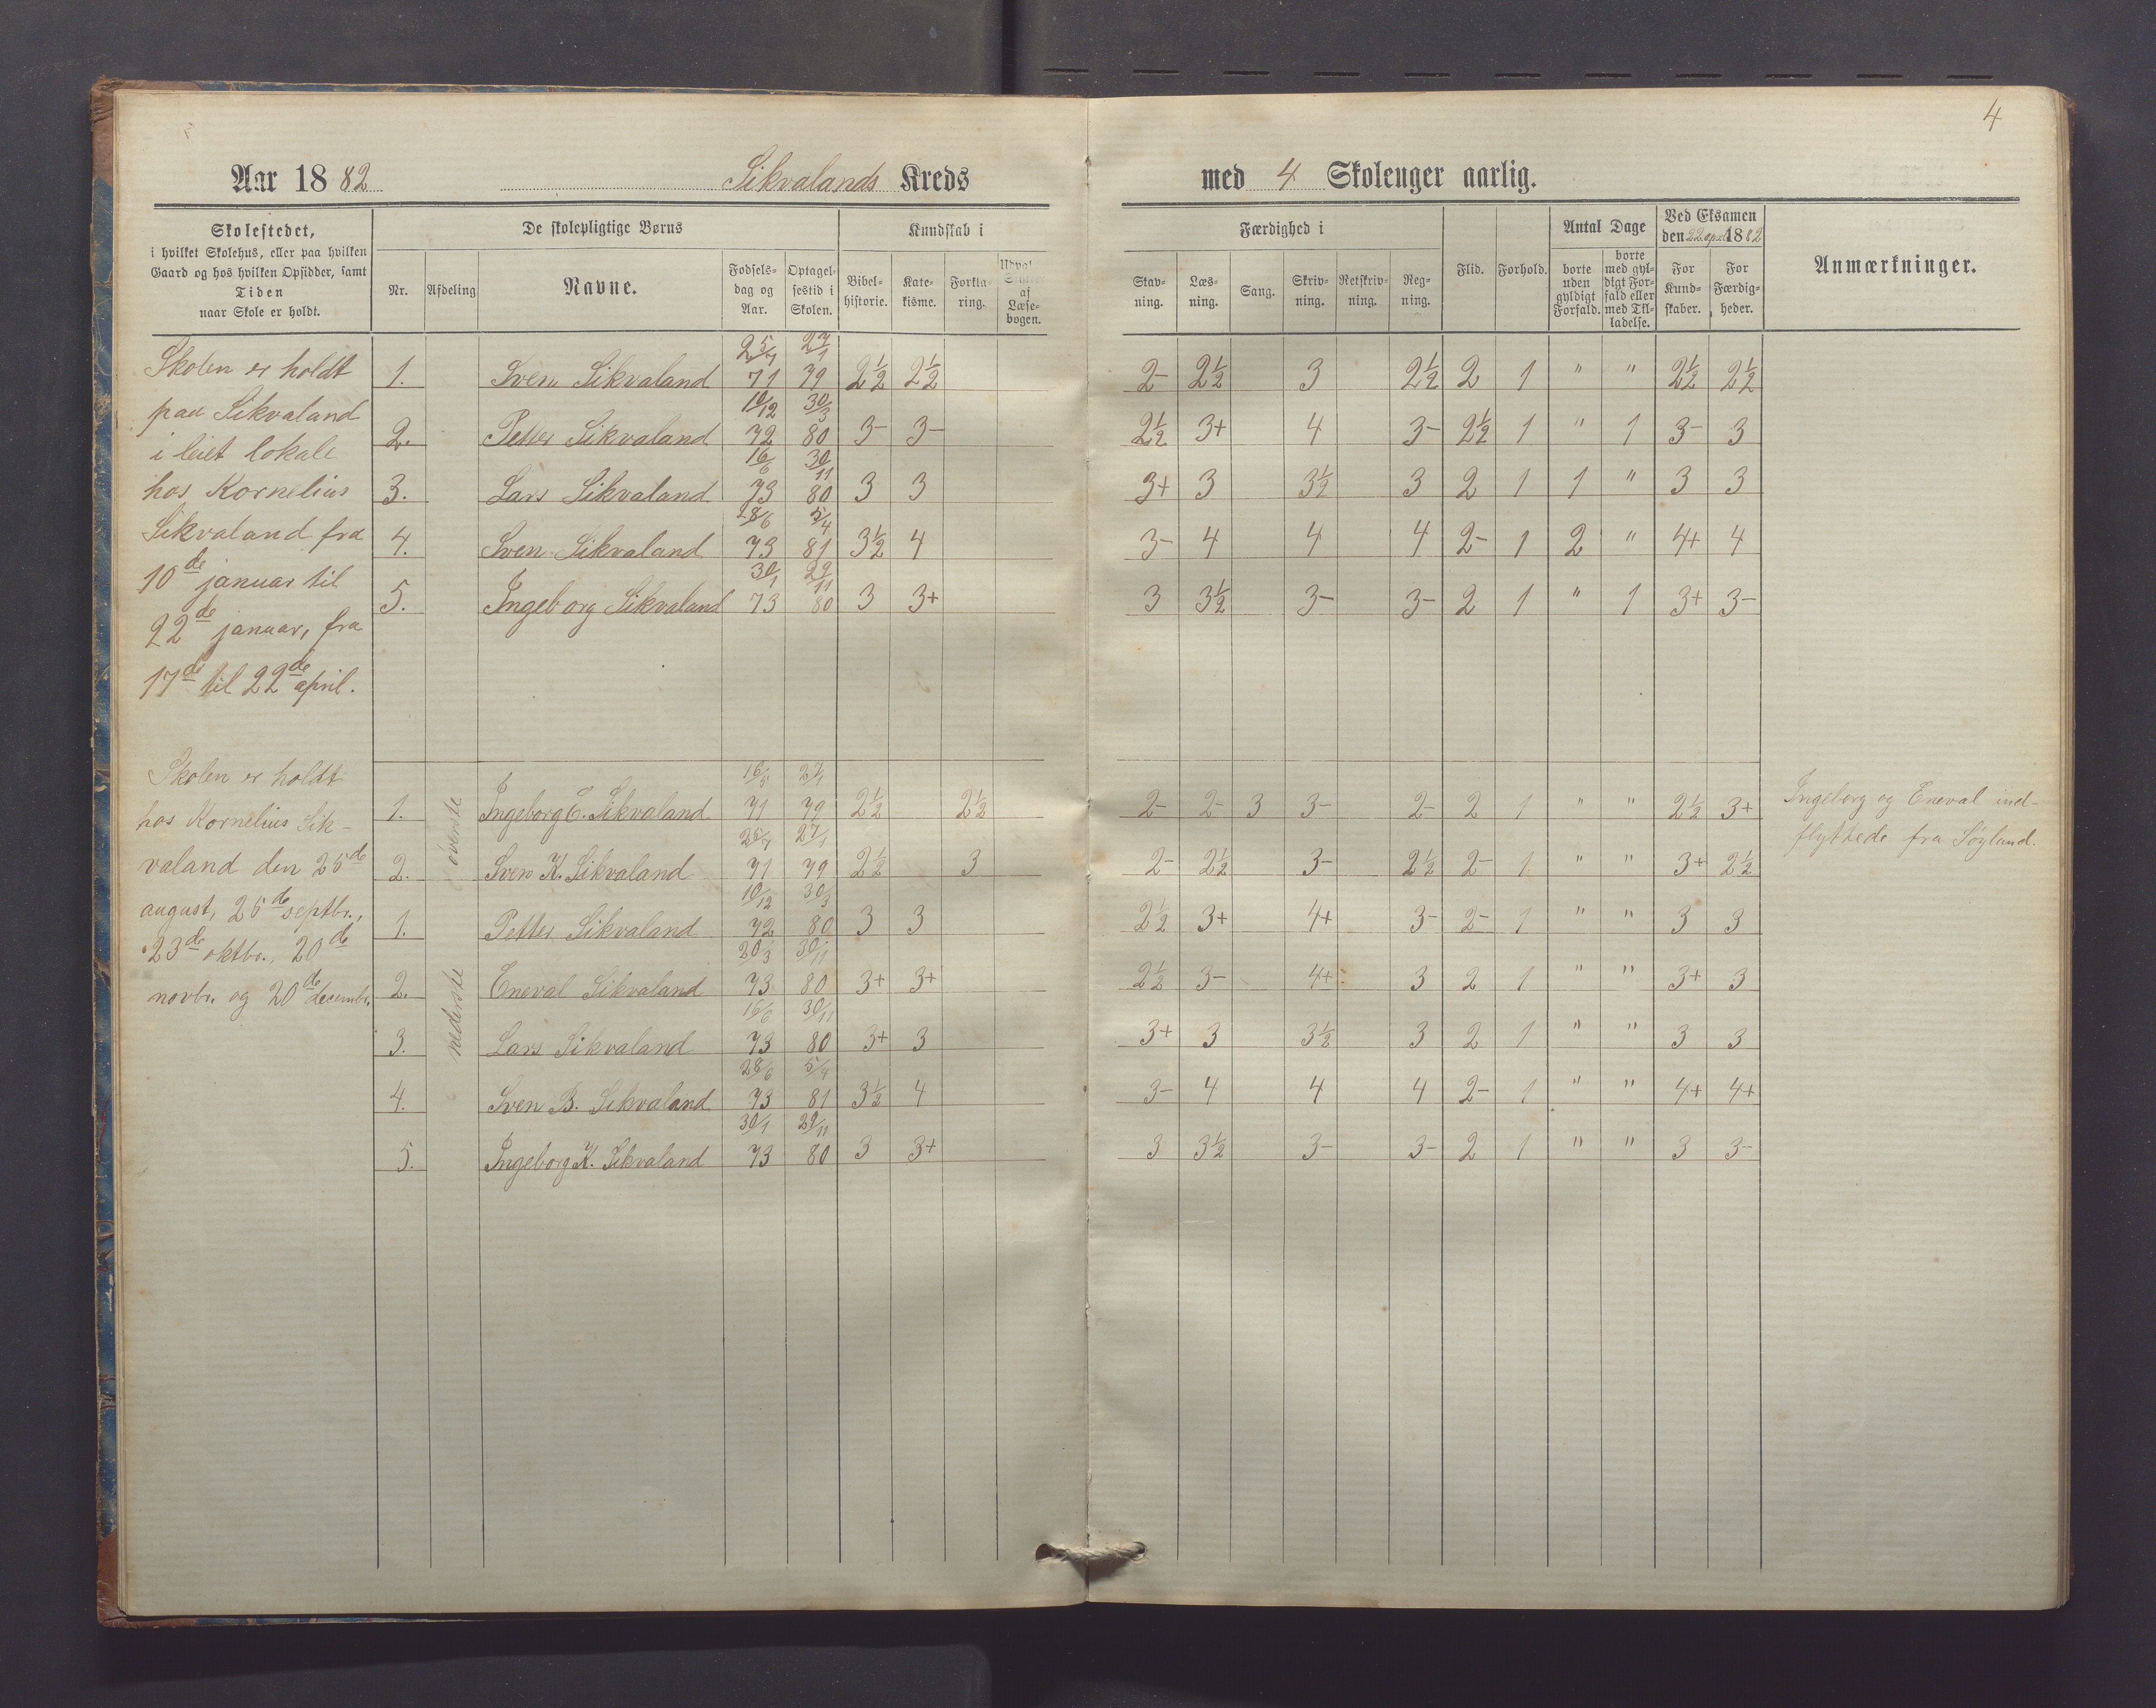 4
Aar 1882 Sikvalands Kreds med 4 Skolenger aarlig.
Skolestedet,
i hvilket Skolehus, eller paa hvilken
Gaard og hos hvilken Opsidder, samt
Tiden
naar Skole er holdt.
De skolepligtige Børns
Nr. Afdeling Navne. Fødsels-dag og Aar. Optagel-sestid i Skolen.
Kundskab i
Bibel-historie. Kate-kisme. Forkla-ring. af Læse-bogen.
Færdighed i
Stav-ning. Læs-ning. Sang. Skriv-ning. Retskriv-ning. Reg-ning.
Flid. Forhold.
Antal Dage
borte uden gyldigt Forfald. borte med gyl-digt For-fald eller med Til-ladelse.
Ved Eksamen
den 22 april 1882
For Kund-skaber. For Færdig-heder.
Anmærkninger.
Skolen er holdt
paa Sikvaland
i leiet lokale
hos Kornelius
Sikvaland fra
10de januar til
22de januar, fra
17de til 22de april.
1. Sven Sikvaland 25/7 71 27/1 79 2½ 2½ 2- 2½ 3 2½ 2 1 " " 2½ 2½
2. Petter Sikvaland 10/12 72 30/3 80 3- 3- 2½ 3+ 4 3- 2½ 1 " 1 3- 3
3. Lars Sikvaland 16/6 73 30/11 80 3 3 3+ 3 3½ 3 2 1 1 " 3 3
4. Sven Sikvaland 28/6 73 5/4 81 3½ 4 3- 4 4 4 2- 1 2 " 4+ 4
5. Ingeborg Sikvaland 30/1 73 29/11 80 3 3+ 3 3½ 3- 3- 2 1 " 1 3+ 3-
Skolen er holdt
hos Kornelius Sik-
valand den 25de
august, 25de septbr.,
23de oktbr., 20de
novbr. og 20de decembr.
øverste
1. Ingeborg E. Sikvaland 16/5 71 27/1 79 2½ 2½ 2- 2- 3 3- 2- 2 1 " " 2½ 3+
2. Sven K. Sikvaland 25/7 71 27/1 79 2½ 3 2- 2½ 3- 2½ 2- 1 " " 3+ 2½
nederste
1. Petter Sikvaland 10/12 72 30/3 80 3 3 2½ 3+ 4+ 3- 2- 1 " " 3 3
2. Eneval Sikvaland 20/3 73 30/11 80 3+ 3+ 2½ 3- 4+ 3 2 1 " " 3+ 3
3. Lars Sikvaland 16/6 73 30/11 80 3+ 3 3+ 3 3½ 3 2 1 " " 3 3
4. Sven B. Sikvaland 28/6 73 5/4 81 3½ 4 3- 4 4 4 2- 1 " " 4+ 4+
5. Ingeborg K. Sikvaland 30/1 73 29/11 80 3 3+ 3 3½ 3- 3- 2 1 " " 3 3-
Ingeborg og Eneval ind-
flyttede fra Søyland.